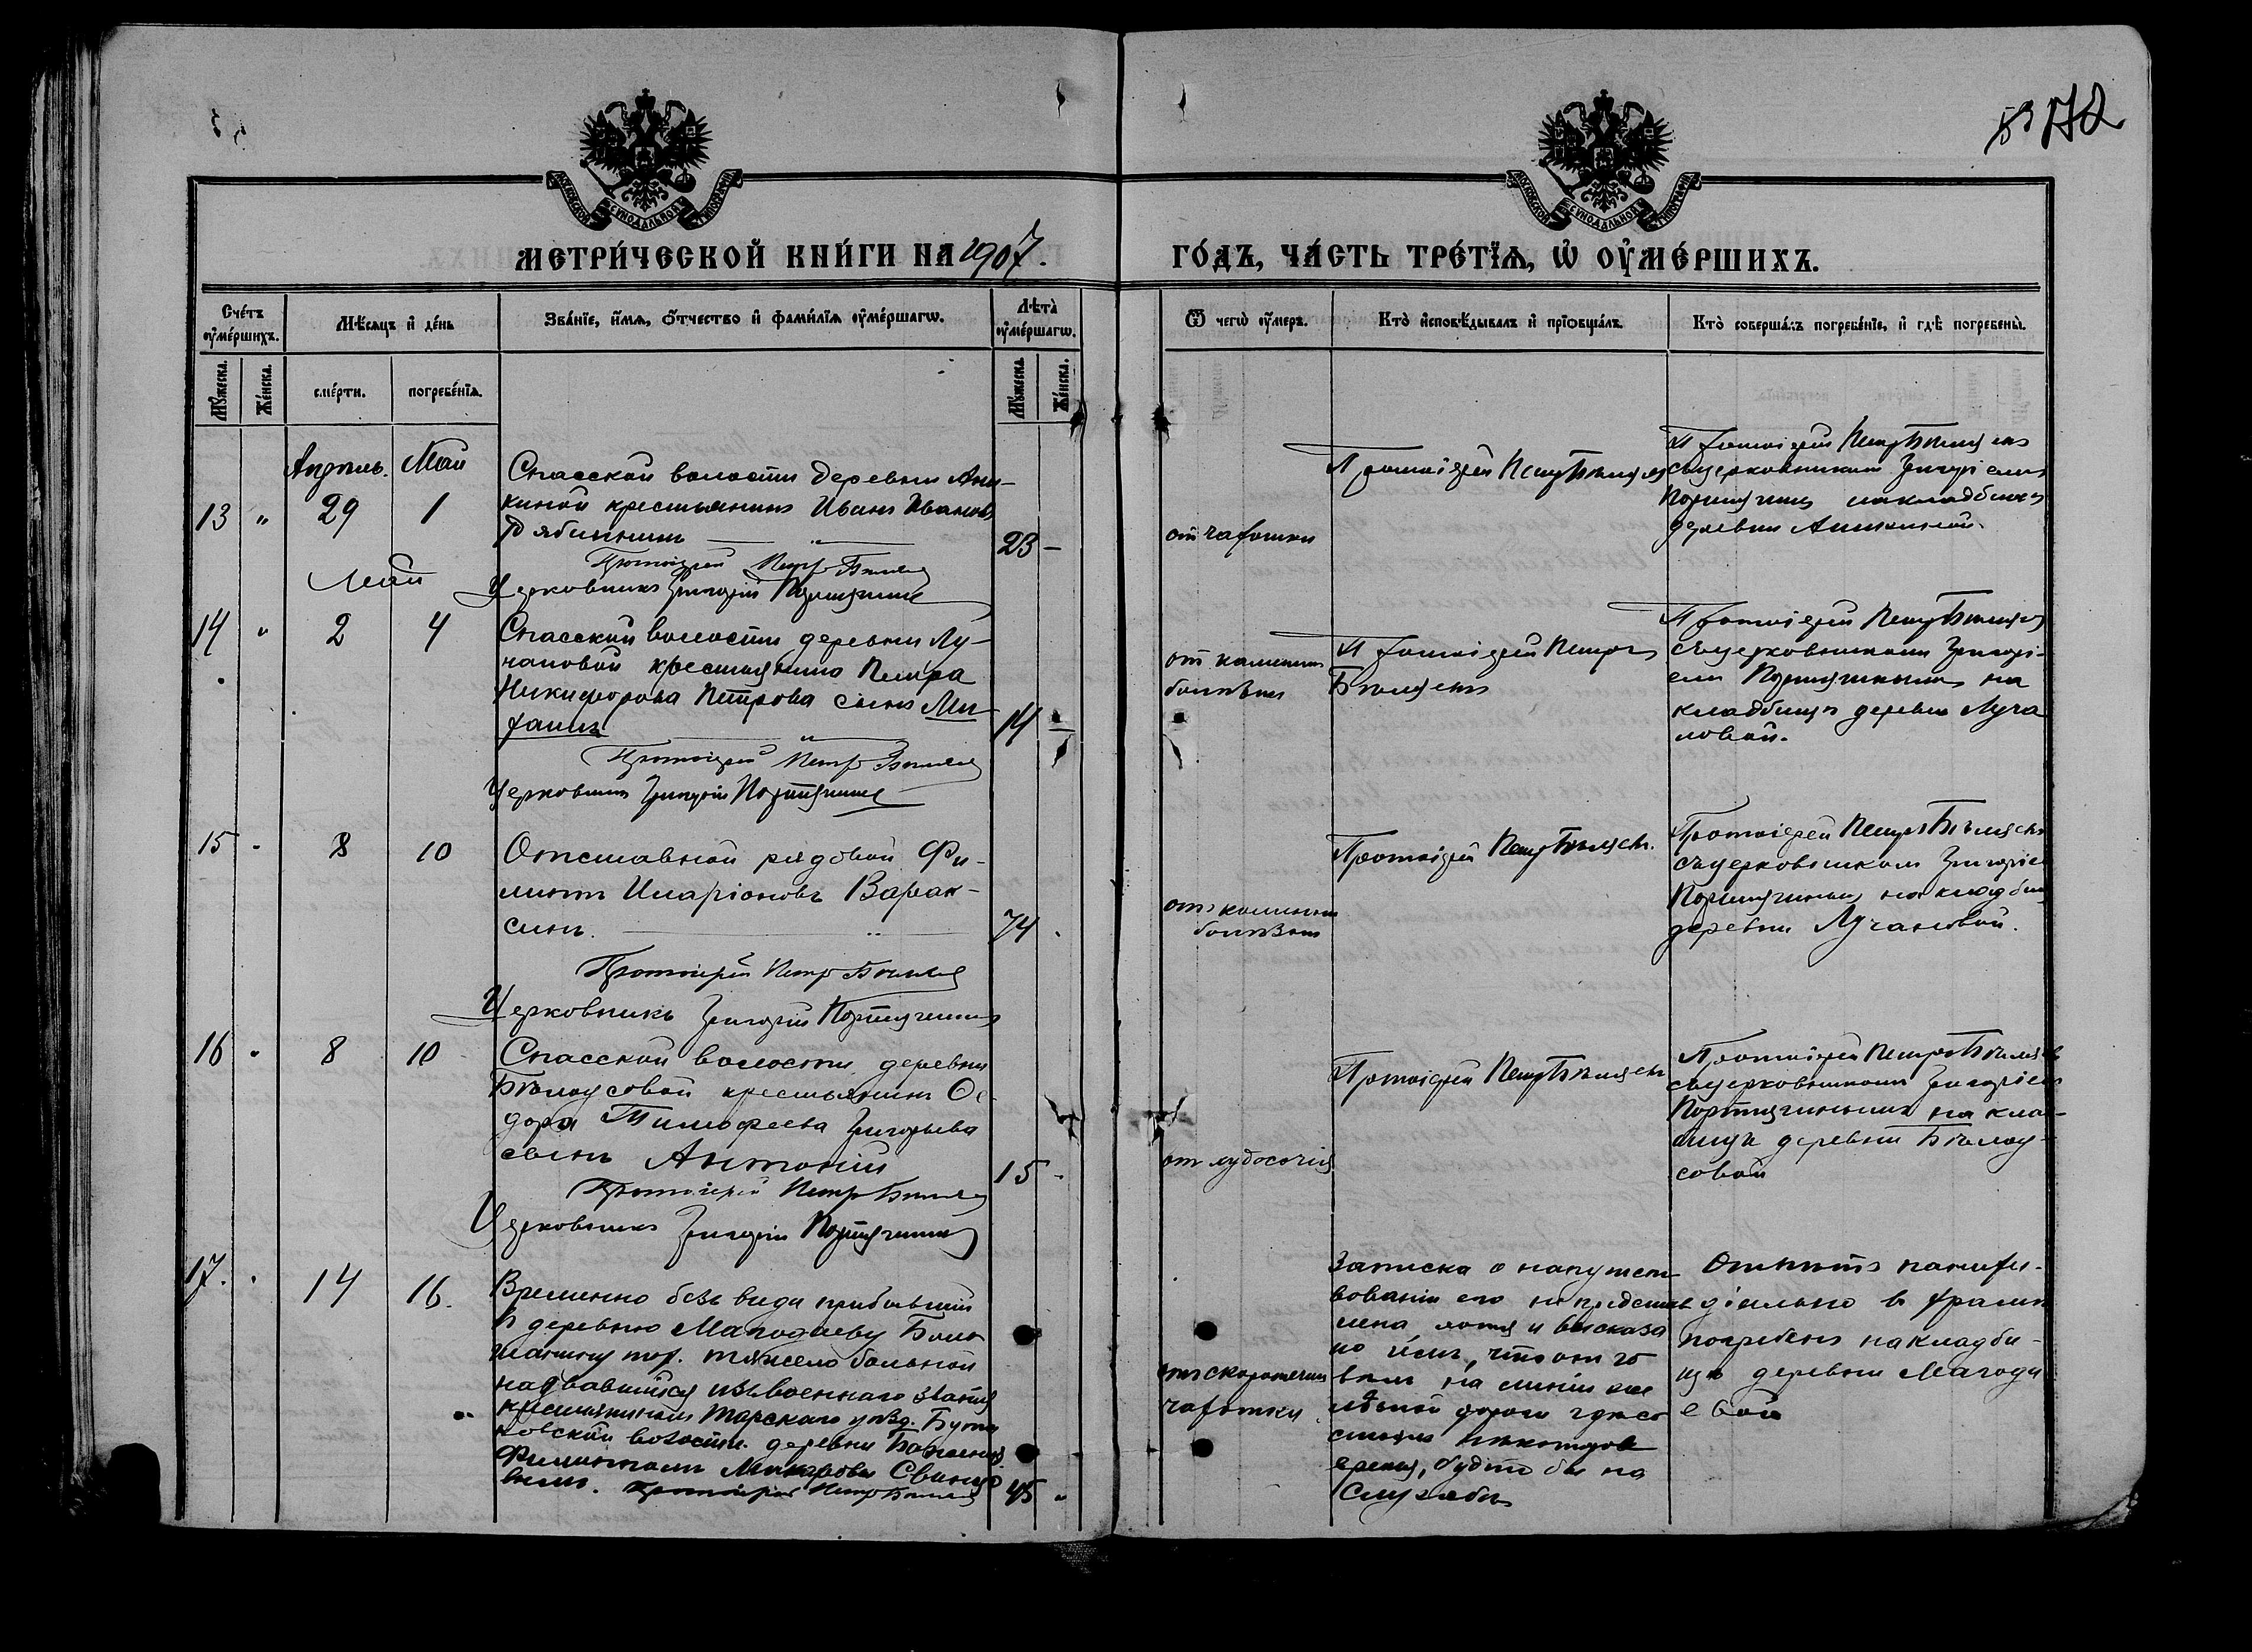 172
МЕТРИ́ЧЕСКОЙ КНИ́ГИ НА 1907.
ГО́ДЪ, ЧА́СТЬ ТРЕ́ТЇѦ, Ѡ҆ ОУ҆МЕ́РШИХЪ.
Сче́тъ оу҆ме́ршихъ.
Мѣ́сяцъ и҆ де́нь
Зва́нїе, и҆́мѧ, ѻ҆́тчество и҆ фами́лїѧ оу҆ме́ршагѡ.
Лѣта̀ оу҆ме́ршагѡ.
Ѿ чегѡ̀ оу҆́меръ.
Кто̀ и҆сповѣ́дывалъ и҆ прїѡбща́лъ.
Кто̀ соверша́лъ погребе́нїе, и҆ гдѣ̀ погребены̀.
Му́жеска.
Же́нска.
сме́рти.
погребе́нїѧ.
Му́жеска.
Же́нска.
Апрѣль. Май
13 " 29 1
Спасской волости деревни Ани-
киной крестьянинъ Иванъ Ивановъ
Рябининъ
23 -
Протоіерей Петръ Бѣляевъ
Церковникъ Григорій Портнягинъ
от чахотки
Протоіерей Петръ Бѣляевъ
Протоіерей Петръ Бѣляевъ
съ церковникомъ Григоріемъ
Портнягинымъ на кладбищѣ
деревни Аникиной.
Май
14 " 2 4
Спасской волости деревни Лу-
чановой крестьянина Петра
Никифорова Петрова сынъ Ми-
хаилъ
14
Протоіерей Петръ Бѣляевъ
Церковникъ Григорій Портнягинъ
от
болѣзни
Протоіерей Петръ
Бѣляевъ
Протоіерей Петръ Бѣляевъ
съ церковникомъ Григорі-
емъ Портнягинымъ на
кладбищѣ деревни Луча
новой.
15 8 10
Отставной рядовой Фи-
липпъ Иларіоновъ Варак-
синъ.
74
Протоіерей Петръ Бѣляевъ
Церковникъ Григорій Портнягинъ
отъ
болѣзни
Протоіерей Петръ Бѣляевъ.
Протоіерей Петръ Бѣляевъ
съ церковникомъ Григоріем
Портнягинымъ на кладбищ
деревни Лучановой.
16 8 10
Спасской волости деревни
Бѣлоусовой крестьянина Ѳе-
дора Тимофеева Григорьева
сынъ Антоній
15
Протоіерей Петръ Бѣляевъ
Церковникъ Григорій Портнягинъ
от худосочія
Протоіерей Петръ Бѣляевъ
Протоіерей Петръ Бѣляевъ
съ церковникомъ Григоріемъ
Портнягинымъ на клад-
бищѣ деревни Бѣлоу-
совой
17. 14 16.
Временно безъ вида прибывшій
в деревню Магодаеву
тяжело больной
назвавшійся изъ военнаго званія
крестьяниномъ Тарскаго уѣзд.
волости. деревни
Филиппомъ Макаровымъ
Протоіерей Петръ Бѣляевъ 45
отъ скоротечной
чахотки
Записка о напутст
вованіи его не представ
лена, хотя и высказа
но
на линіи же
лѣзной дороги гдѣ
нѣкоторое
время, будто бы на
Службѣ
Отпѣтъ панихи-
діально в храмѣ
погребенъ на кладби-
щѣ деревни Магода
евой